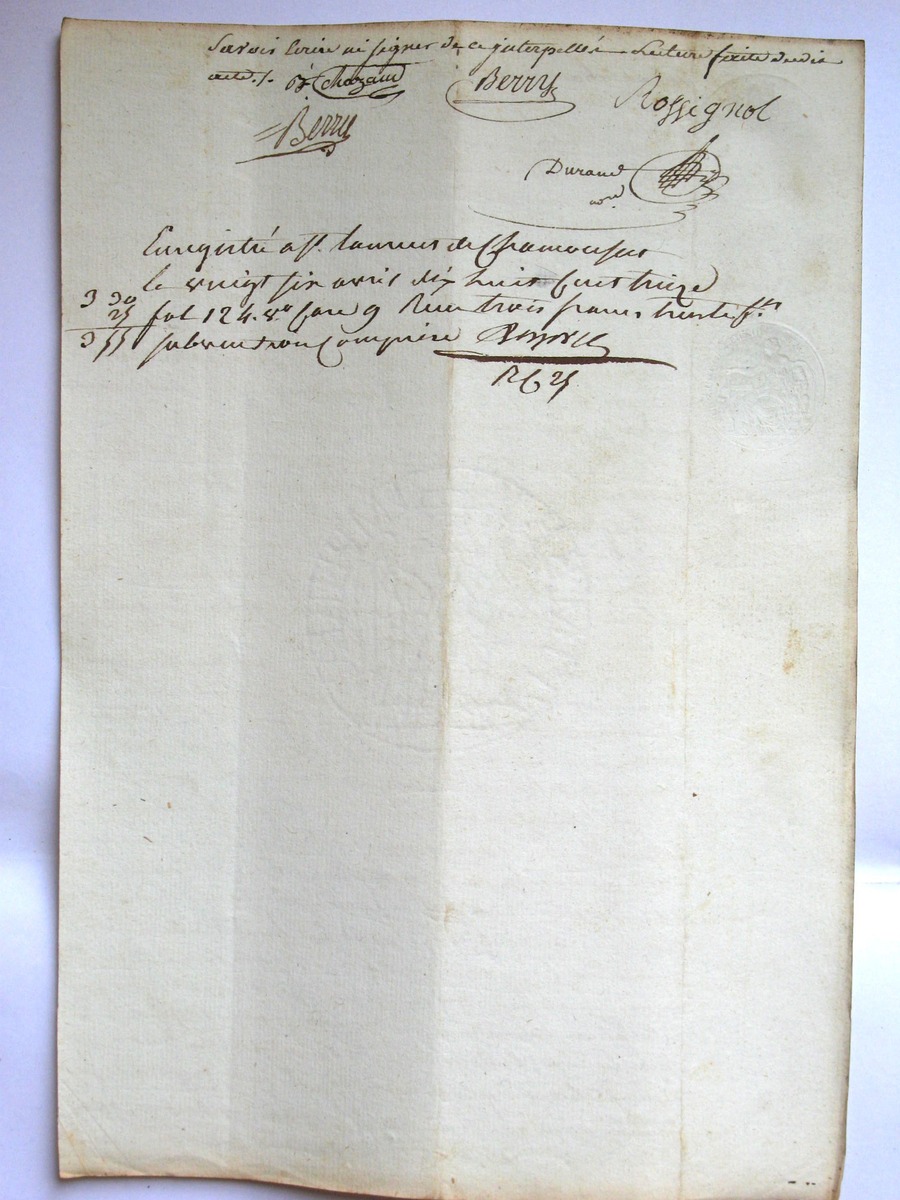 Savoir Ecrire ni signer de ce interpellés Lecture faite dudit
acte ./. Chazaud Berry Rossignol
Berry
Durand
nore
Enregistré a St. Laurens de Chamousset
le vingt six avril dix huit Cent treize
3 30 fol 124 vo Case 9 Reçu trois francs trente Cmes
25
3 55 subvention Comprise
RC 25